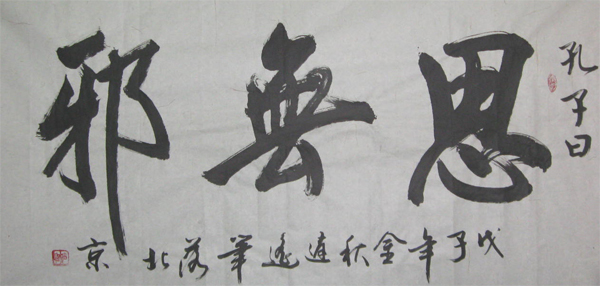 孔子曰
思無邪
戊子年金秋逍遙筆落北京